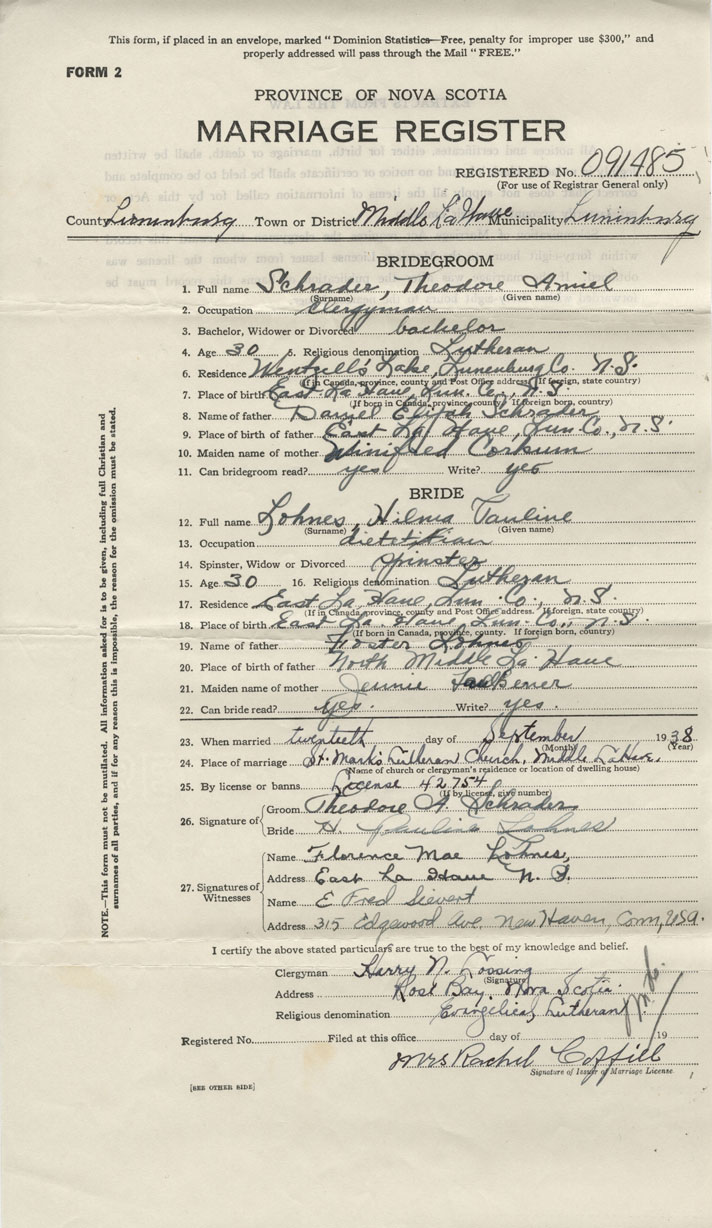 This form, if placed in an envelope, marked "Dominion Statistics—Free, penalty for improper use $300," and
properly addressed will pass through the Mail "FREE."
FORM 2
PROVINCE OF NOVA SCOTIA
MARRIAGE REGISTER
REGISTERED No. 091485
(For use of Registrar General only)
County Lunenburg Town or District Middle LaHave Municipality Lunenburg
BRIDEGROOM
1. Full name Schrader, Theodore Amiel
(Surname) (Given name)
2. Occupation clergyman
3. Bachelor, Widower or Divorced bachelor
4. Age 30 5. Religious denomination Lutheran
6. Residence Wentzell's Lake, Lunenburg Co. N.S.
(If in Canada, province, county and Post Office address. If foreign, state country)
7. Place of birth East La Have, Lun. Co., N.S.
(If born in Canada, province, county. If foreign born, country)
8. Name of father Daniel Elijah Schrader
9. Place of birth of father East La Have, Lun Co., N.S.
10. Maiden name of mother Winifred Corkum
11. Can bridegroom read? yes Write? yes
BRIDE
12. Full name Lohnes, Hilma Pauline
(Surname) (Given name)
13. Occupation dietitian
14. Spinster, Widow or Divorced spinster
15. Age 30 16. Religious denomination Lutheran
17. Residence East La Have, Lun. Co., N.S.
(If in Canada, province, county and Post Office address. If foreign, state country)
18. Place of birth East La Have, Lun. Co., N.S.
(If born in Canada, province, county. If foreign born, country)
19. Name of father Foster Lohnes
20. Place of birth of father North Middle La Have
21. Maiden name of mother Jennie
22. Can bride read? yes. Write? yes.
23. When married twentieth day of September 1938
(Month) (Year)
24. Place of marriage St. Mark's Lutheran Church, Middle LaHave.
(Name of church or clergyman's residence or location of dwelling house)
25. By license or banns License 42754
(If by license, give number)
26. Signature of
Groom Theodore A. Schrader
Bride H. Pauline Lohnes
27. Signatures of Witnesses
Name Florence Mae Lohnes,
Address East La Have N. S.
Name E Fred Sievert
Address 315 Edgewood Ave. New Haven, Conn, USA.
I certify the above stated particulars are true to the best of my knowledge and belief.
Clergyman Harry N. Lossing
(Signature)
Address Rose Bay, Nova Scotia
Religious denomination Evangelical Lutheran
Registered No. Filed at this office day of 19
Mrs Rachel Coffill
Signature of Issuer of Marriage License
[SEE OTHER SIDE]
NOTE.—This form must not be mutilated. All information asked for is to be given, including full Christian and
surnames of all parties, and if for any reason this is impossible, the reason for the omission must be stated.